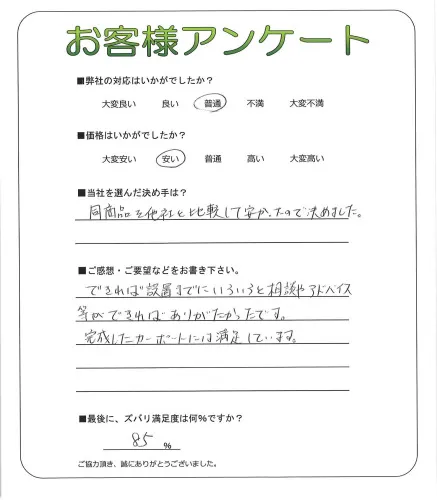 お客様アンケート
■弊社の対応はいかがでしたか？
大変良い 良い 普通 不満 大変不満
■価格はいかがでしたか？
大変安い 安い 普通 高い 大変高い
■当社を選んだ決め手は？
同商品を他社と比較して安かったので決めました。
■ご感想・ご要望などをお書き下さい。
できれば設置までにいろいろと相談やアドバイス
等ができればありがたかったです。
完成したカーポートには満足しています。
■最後に、ズバリ満足度は何％ですか？
85 ％
ご協力頂き、誠にありがとうございました。